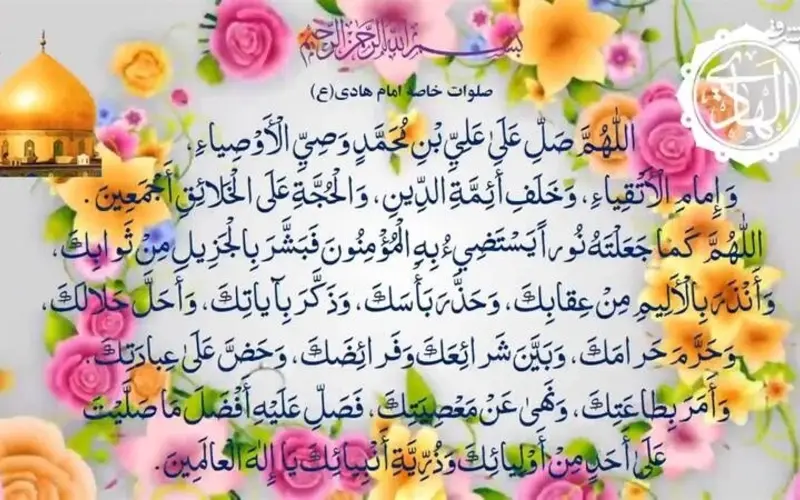 بِسْمِ اللهِ الرَّحْمٰنِ الرَّحِيمِ
صلوات خاصه امام هادی(ع)
الهادي
اللّٰهُمَّ صَلِّ عَلَىٰ عَلِيِّ بْنِ مُحَمَّدٍ وَصِيِّ الْأَوْصِياءِ،
وَ إِمامِ الْأَتْقِياءِ، وَخَلَفِ أَئِمَّةِ الدِّينِ، وَالْحُجَّةِ عَلَى الْخَلائِقِ أَجْمَعِينَ.
اللّٰهُمَّ كَما جَعَلْتَهُ نُوراً يَسْتَضِيءُ بِهِ الْمُؤْمِنُونَ فَبَشَّرَ بِالْجَزِيلِ مِنْ ثَوابِكَ،
وَ أَنْذَرَ بِالْأَلِيمِ مِنْ عِقابِكَ، وَحَذَّرَ بَأْسَكَ، وَذَكَّرَ بِآياتِكَ، وَأَحَلَّ حَلالَكَ،
وَحَرَّمَ حَرامَكَ، وَبَيَّنَ شَرائِعَكَ وَفَرائِضَكَ، وَحَضَّ عَلَىٰ عِبادَتِكَ.
وَأَمَرَ بِطاعَتِكَ، وَنَهىٰ عَنْ مَعْصِيَتِكَ، فَصَلِّ عَلَيْهِ أَفْضَلَ مَا صَلَّيْتَ
عَلَىٰ أَحَدٍ مِنْ أَوْلِيائِكَ وَذُرِّيَّةِ أَنْبِيائِكَ يَا إِلٰهَ الْعالَمِينَ.